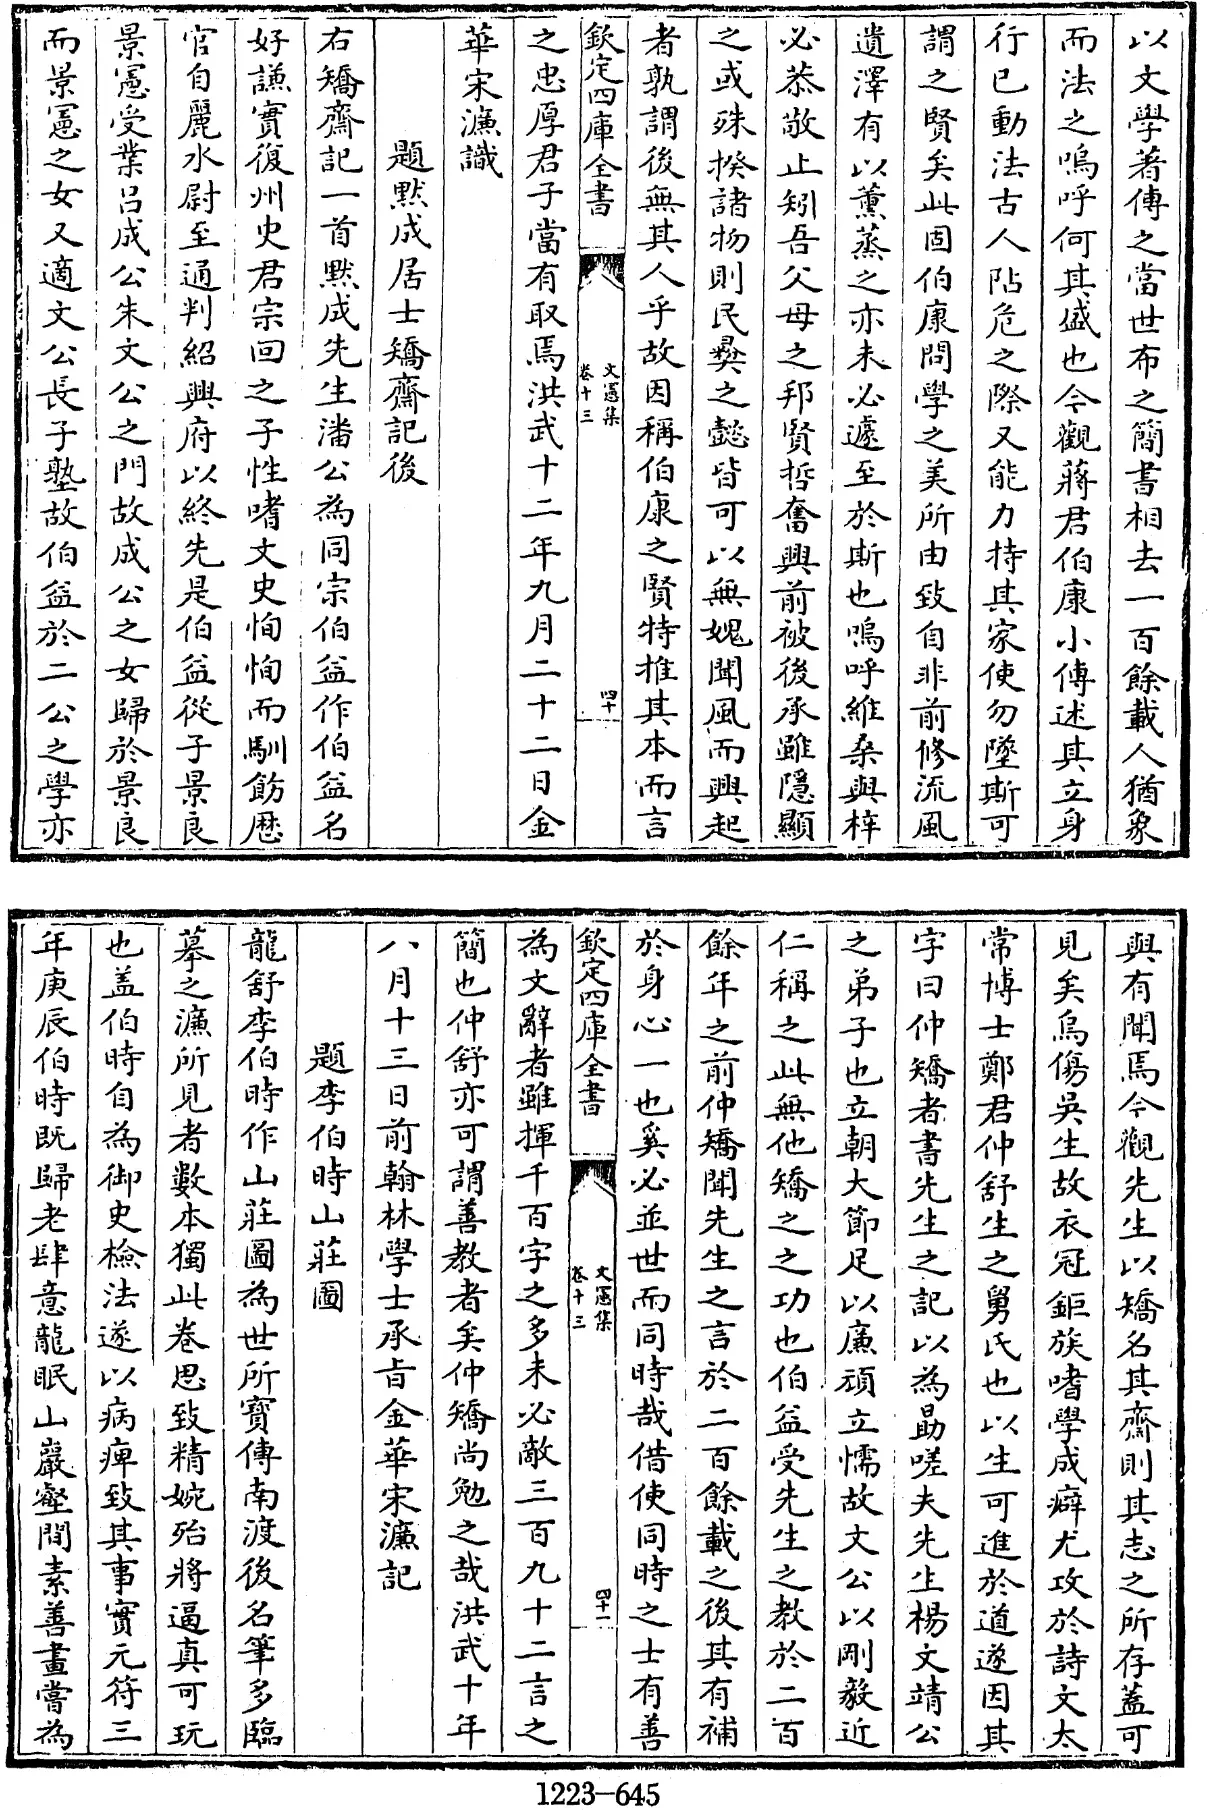 以文學著傳之當世布之簡書相去一百餘載人猶象
而法之嗚呼何其盛也今觀蔣君伯康小傳述其立身
行已動法古人阽危之際又能力持其家使勿墜斯可
謂之賢矣此固伯康問學之美所由致自非前修流風
遺澤有以薰蒸之亦未必遽至於斯也嗚呼維桑與梓
必恭敬止矧吾父母之邦賢哲奮興前被後承雖隱顯
之或殊揆諸物則民彛之懿皆可以無媿聞風而興起
者孰謂後無其人乎故因稱伯康之賢特推其本而言
欽定四庫全書
文憲集
卷十三
四十
之忠厚君子當有取焉洪武十二年九月二十二日金
華宋濂識
題默成居士矯齋記後
右矯齋記一首默成先生潘公為同宗伯益作伯益名
好謙實復州史君宗回之子性嗜文史恂恂而馴飭歴
官自麗水尉至通判紹興府以終先是伯益從子景良
景憲受業吕成公朱文公之門故成公之女歸於景良
而景憲之女又適文公長子塾故伯益於二公之學亦
與有聞焉今觀先生以矯名其齋則其志之所存蓋可
見矣烏傷吳生故衣冠鉅族嗜學成癖尤攻於詩文太
常博士鄭君仲舒生之舅氏也以生可進於道遂因其
字曰仲矯者書先生之記以為勗嗟夫先生楊文靖公
之弟子也立朝大節足以廉頑立懦故文公以剛毅近
仁稱之此無他矯之之功也伯益受先生之教於二百
餘年之前仲矯聞先生之言於二百餘載之後其有補
於身心一也奚必並世而同時哉借使同時之士有善
欽定四庫全書
文憲集
卷十三
四十一
為文辭者雖揮千百字之多未必敵三百九十二言之
簡也仲舒亦可謂善教者矣仲矯尚勉之哉洪武十年
八月十三日前翰林學士承旨金華宋濂記
題李伯時山莊圖
龍舒李伯時作山莊圖為世所寳傳南渡後名筆多臨
摹之濂所見者數本獨此卷思致精婉殆將逼真可玩
也盖伯時自為御史檢法遂以病痺致其事實元符三
年庚辰伯時既歸老肆意龍眠山巖壑間素善畫嘗為
1223—645